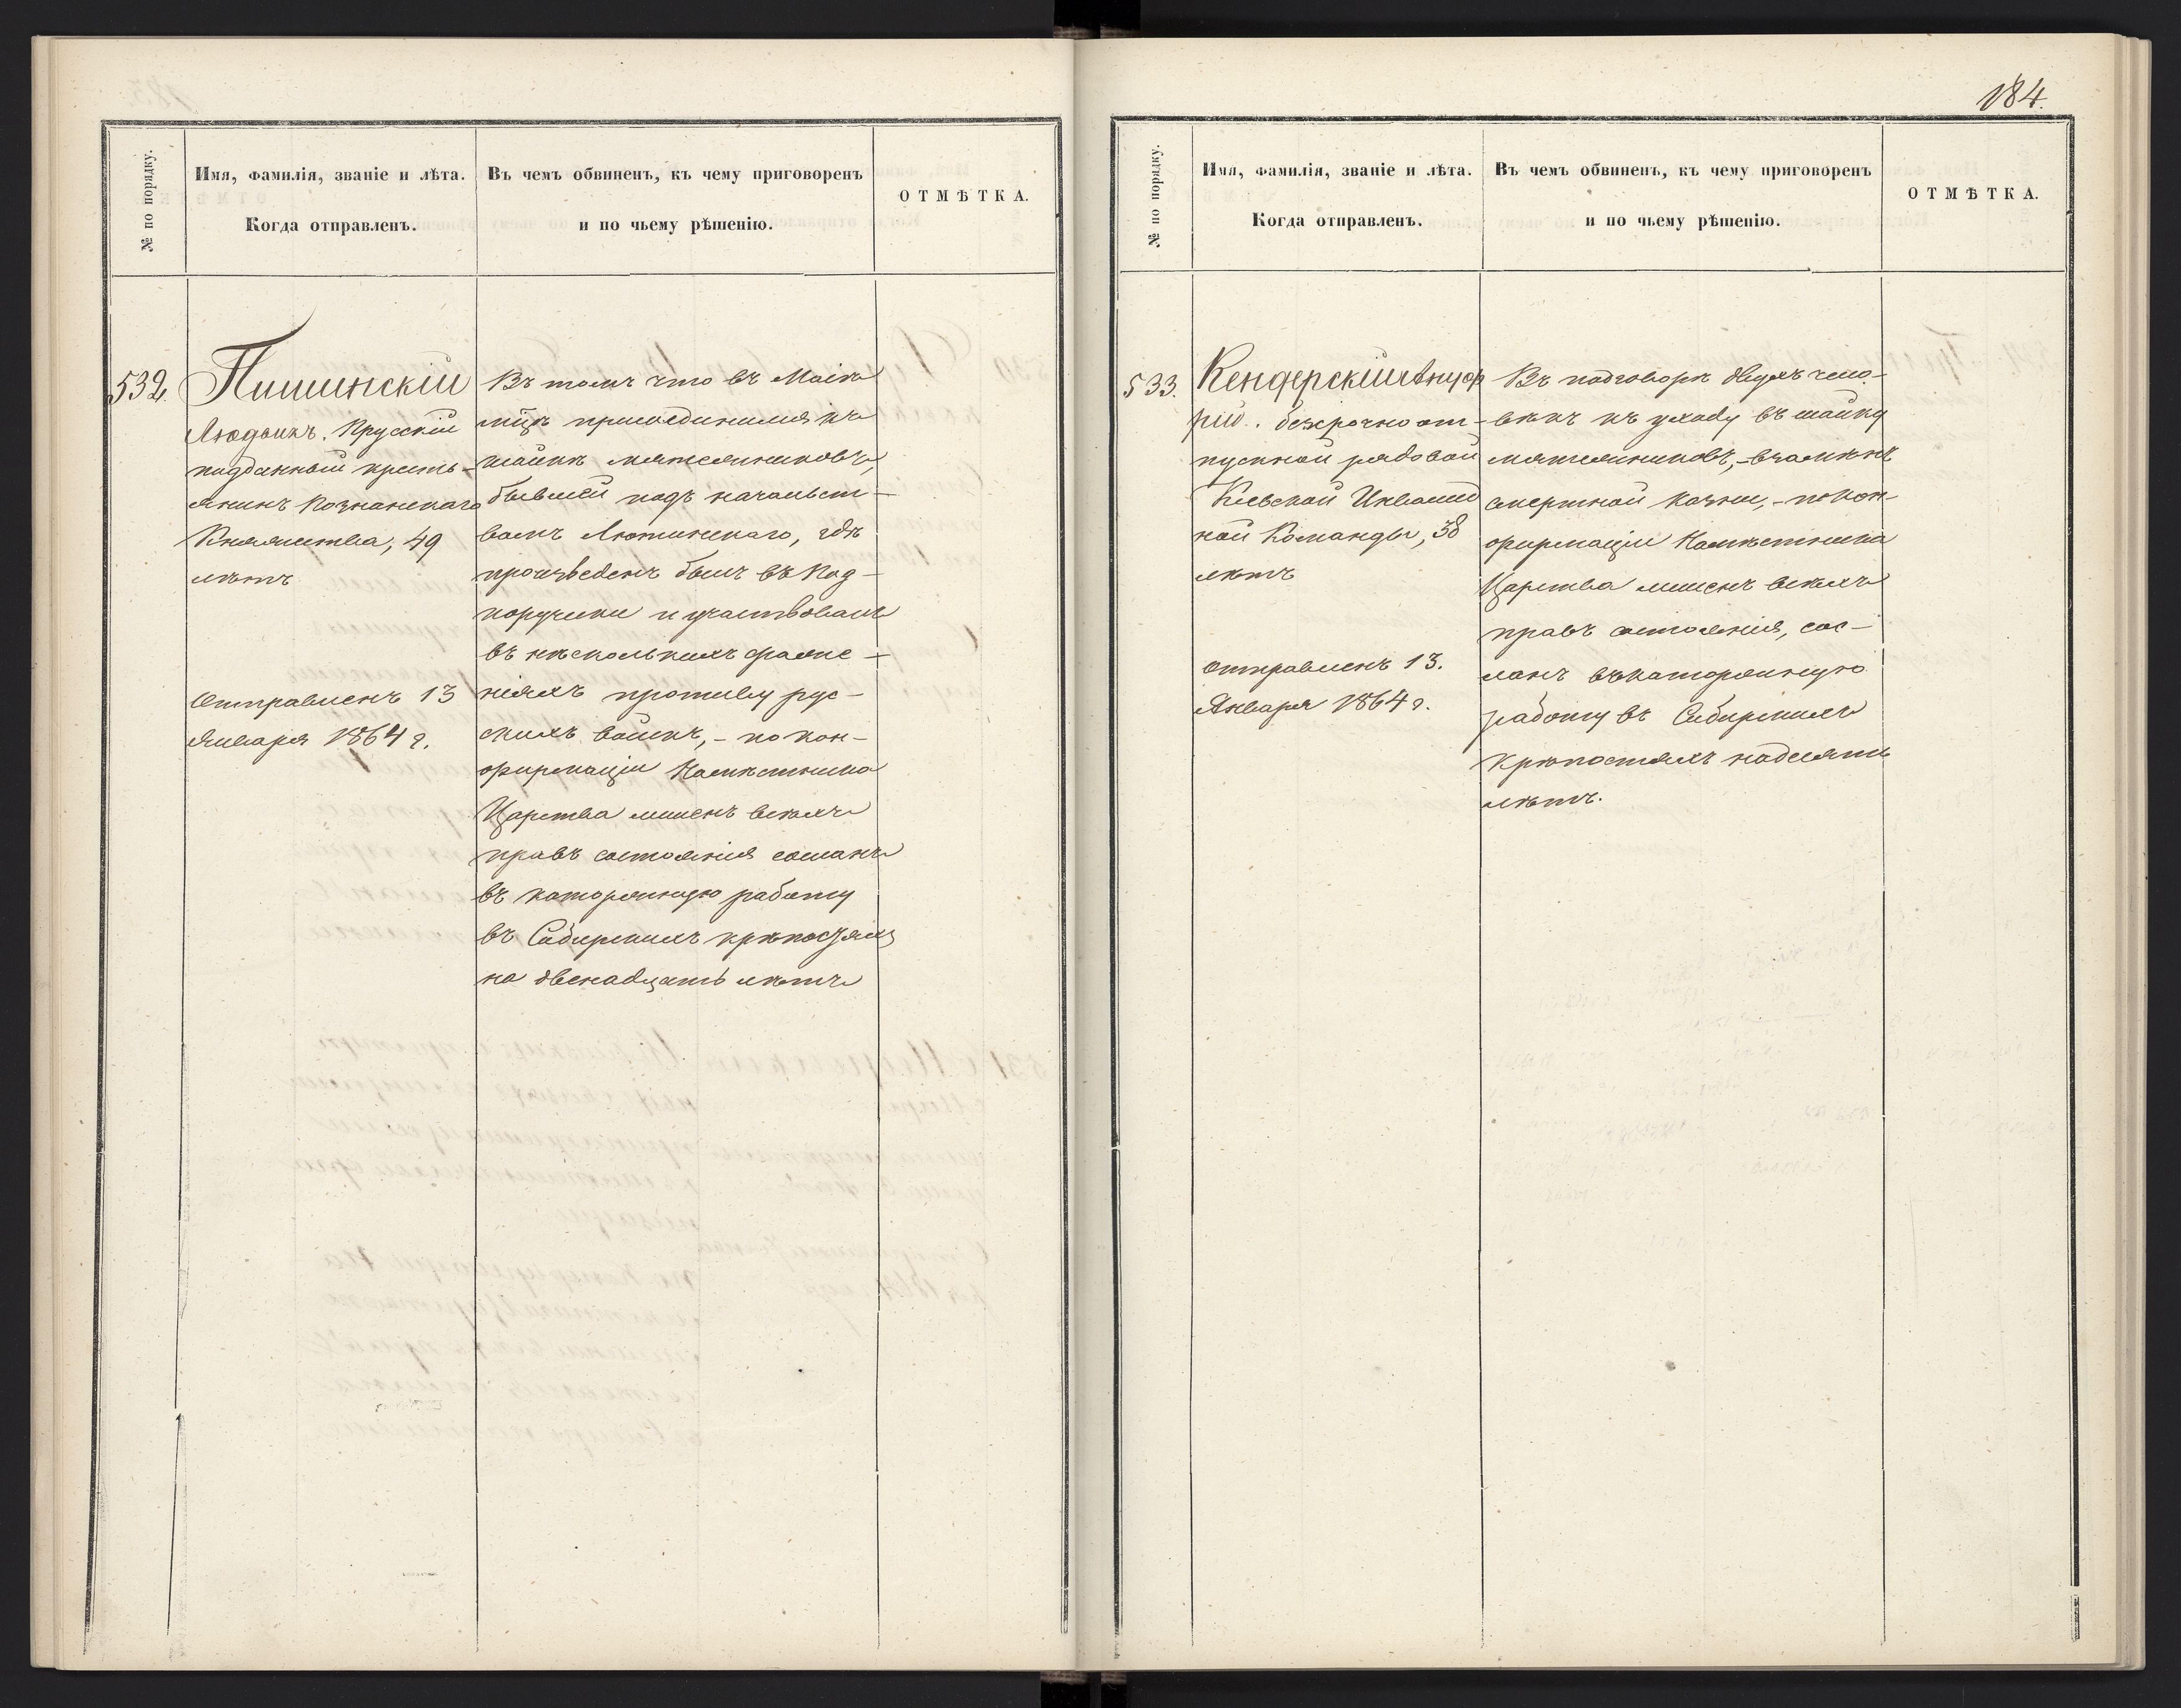 184.
№ по порядку.
Имя, фамилія, званіе и лѣта.
Когда отправленъ.
Въ чемъ обвиненъ, къ чему приговоренъ
и по чьему рѣшенію.
ОТМѢТКА.
532.
Пишинскій
Людвикъ. Прусскій
подданный кресть-
янинъ Познанскаго
Княжества, 49
лѣтъ
Отправленъ 13
Января 1864 г.
Въ томъ что въ Маѣ
мѣцѣ присоединился къ
шайкѣ мятежниковъ,
бывшей подъ начальст-
вомъ Лютинскаго, гдѣ
произведенъ былъ въ Под-
поручики и участвовалъ
въ нѣсколькихъ сраже-
ніяхъ противу рус-
скихъ войскъ, - по кон-
фирмаціи Намѣстника
Царства лишенъ всѣхъ
правъ состоянія сосланъ
въ каторжную работу
въ Сибирскихъ крѣпостяхъ
на двенадцать лѣтъ
№ по порядку.
Имя, фамилія, званіе и лѣта.
Когда отправленъ.
Въ чемъ обвиненъ, къ чему приговоренъ
и по чьему рѣшенію.
ОТМѢТКА.
533.
Кендерскій Онуф
рій. безсрочно от-
пускной рядовой
Кіевской Инвалид
ной Команды, 38
лѣтъ
Отправленъ 13.
Января 1864 г.
Въ подговорѣ двухъ чело-
вѣкъ къ уходу въ шайку
мятежниковъ, - взамѣнъ
смертной казни, - по кон-
фирмаціи Намѣстника
Царства лишенъ всѣхъ
правъ состоянія, сос-
ланъ въ каторжную
работу въ Сибирскихъ
крѣпостяхъ на десять
лѣтъ.